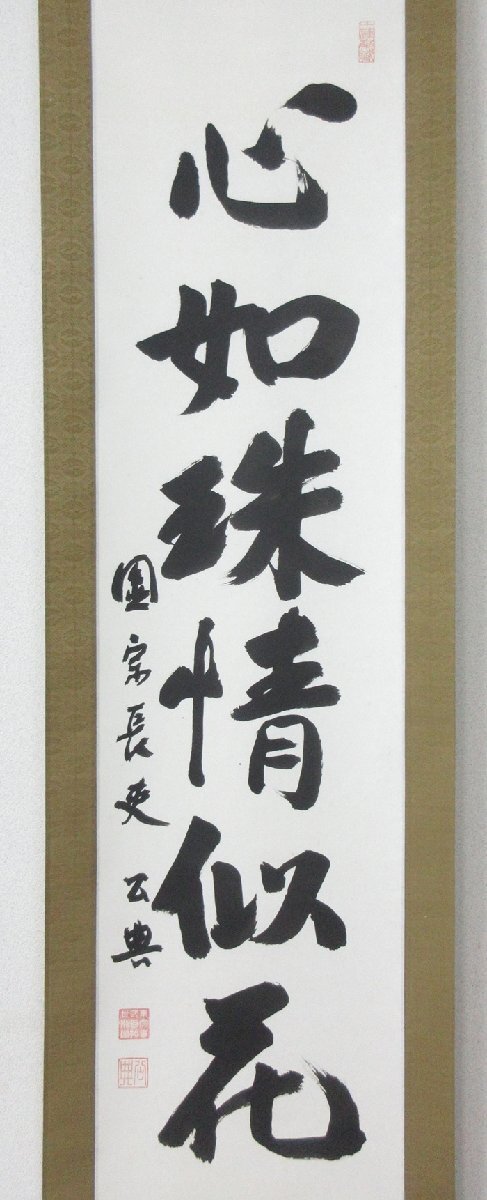 心如珠情似花
圓宗長吏 公典